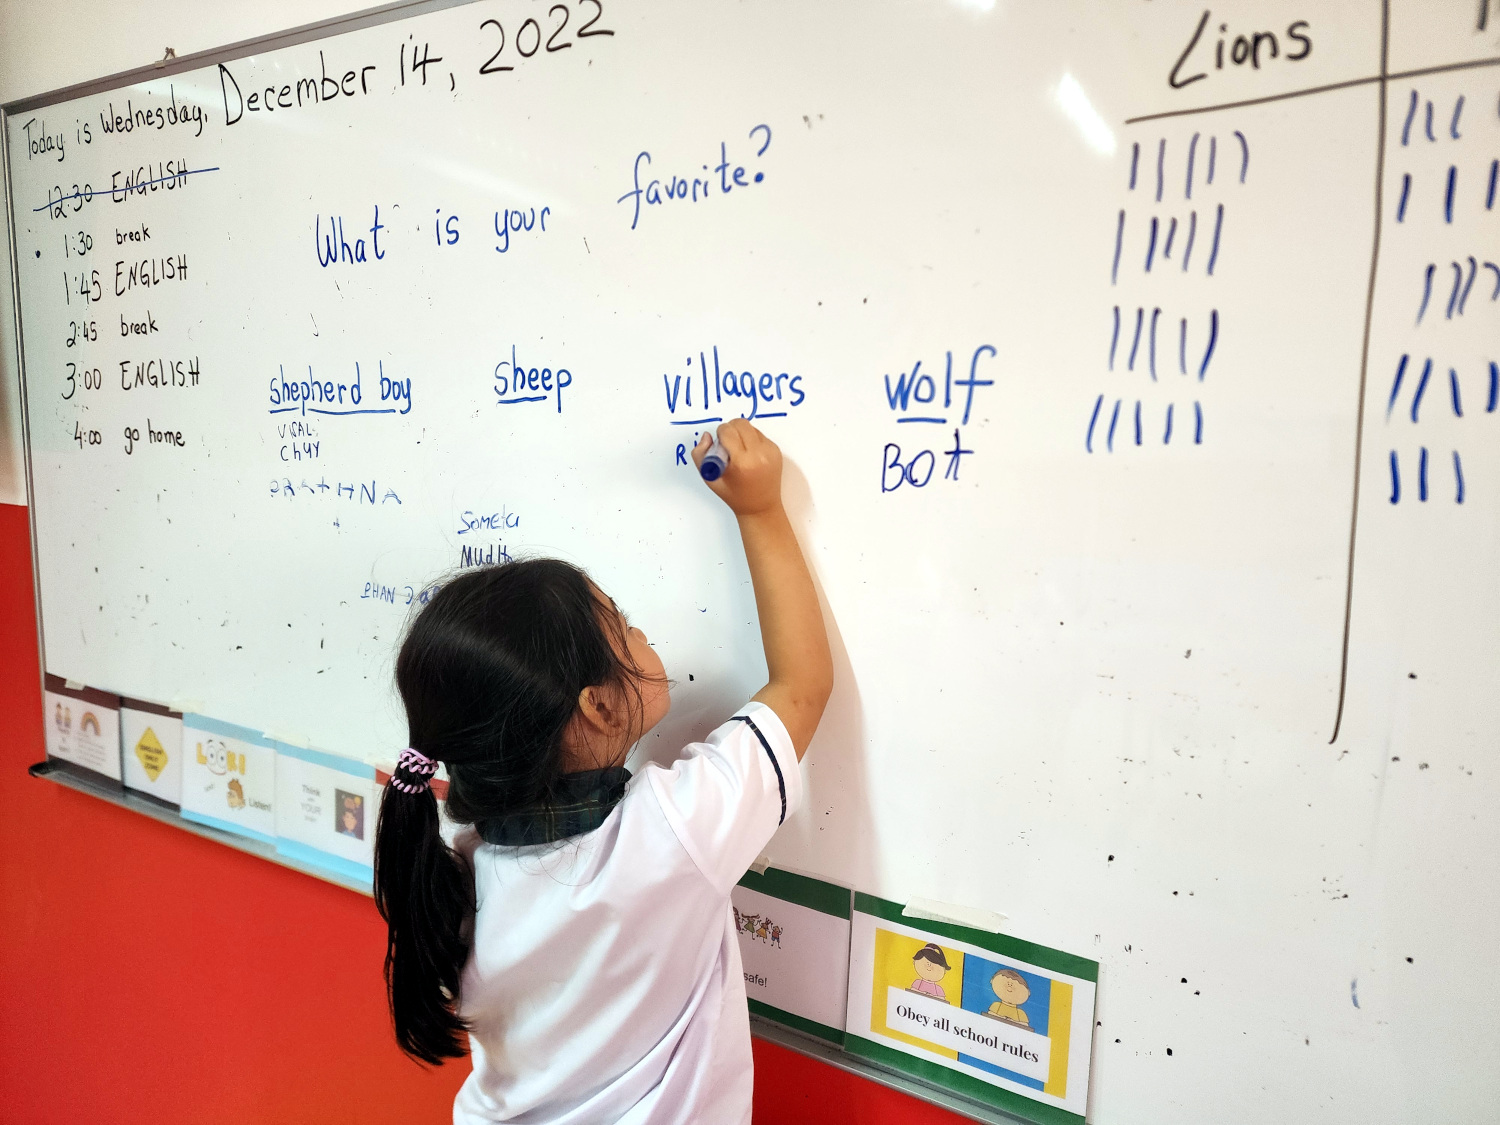 Today is Wednesday, December 14, 2022
12:30 ENGLISH
1:30 break
1:45 ENGLISH
2:45 break
3:00 ENGLISH
4:00 go home
What is your favorite?
shepherd boy
VISAL
CHUY
sheep
Mudit
villagers
Ri
wolf
BOt
Lions
LOOK!
Listen!
Think
YOUR
safe!
Obey all school rules